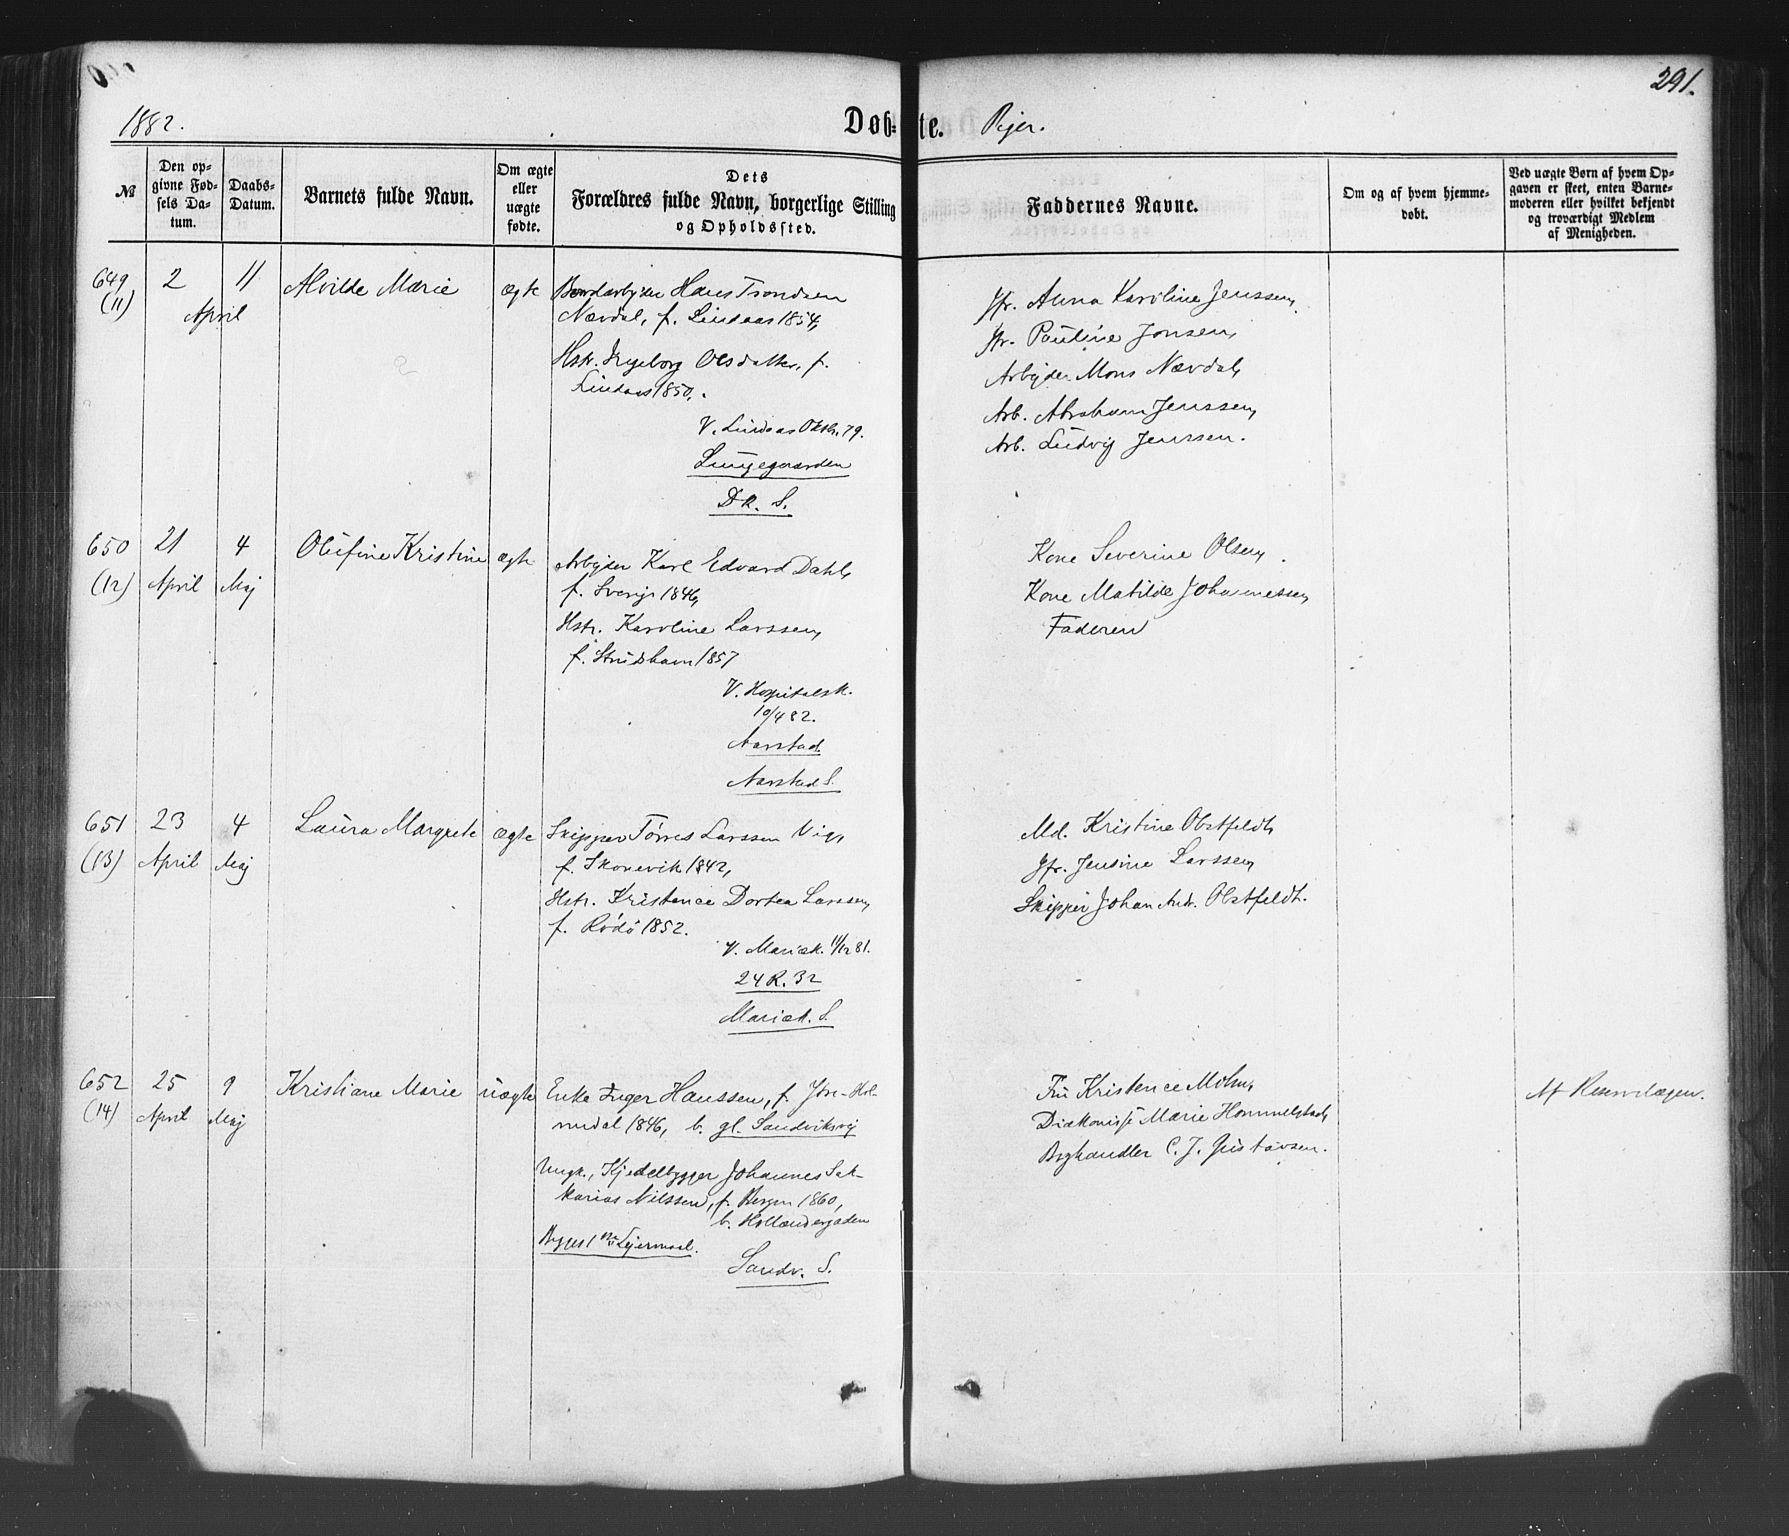 291.
1882.
Døb-te.
Piger.
№
Den op-
givne Fød-
sels Da-
tum.
Daabs-
Datum.
Barnets fulde Navn.
Om ægte
eller
uægte
fødte.
Dets
Forældres fulde Navn, borgerlige Stilling
og Opholdssted.
Faddernes Navne.
Om og af hvem hjemme-
døbt.
Ved uægte Børn af hvem Op-
gaven er skeet, enten Barne-
moderen eller hvilket bekjendt
og troværdigt Medlem
af Menigheden.
649
(11)
2
11
April
Alvilde Marie
ægte
Bordarbejder Hans Trondsen
Nævdal, f. Lindaas 1854,
Hstr. Ingeborg Olsdatter, f.
Lindaas 1850.
V. Lindaas Oktbr. 79.
Lungegaarden
Dk. S.
Jfr. Anna Karoline Jenssen,
Jfr. Pauline Jonsen,
Arbejder Mons Nævdal,
Arb. Abraham Jenssen,
Arb. Ludvig Jenssen.
650
(12)
21
April
4
Maj
Olufine Kristine
ægte
Arbejder Karl Edvard Dahl,
f. Sverig 1846,
Hstr. Karoline Larssen,
f. Strudshavn 1857
V. Hospitalsk.
10/4 82.
Aarstad.
Aarstad S.
Kone Severine Olsen,
Kone Matilde Johannessen,
Faderen
651
(13)
23
April
4
Maj
Laura Margrete
ægte
Skipper Tørres Larssen Vig,
f. Skonevik 1842,
Hstr. Kristence Dortea Larssen,
f. Rødø 1852.
V. Mariæk. 11/12 81.
24 R. 32
Mariæk. S.
Md. Kristine Obstfeldt,
Jfr. Jensine Larssen,
Skipper Johan Andr. Obstfeldt.
652
(14)
25
April
9
Maj
Kristiane Marie
uægte
Enke Inger Hanssen, f. Jøn-Hol-
mdal 1846, b. gl. Sandviksvej
Ungk., Kjedelbygger Johannes Sak-
karias Nilssen, f. Bergen 1860,
b. Hollændergaden
Begges 1ste Lejermaal.
Sandv. S.
Fru Kristence Mohn,
Diakonisse Marie Hommelstad,
Boghandler C. J. Gustavsen.
Af Reservelægen.